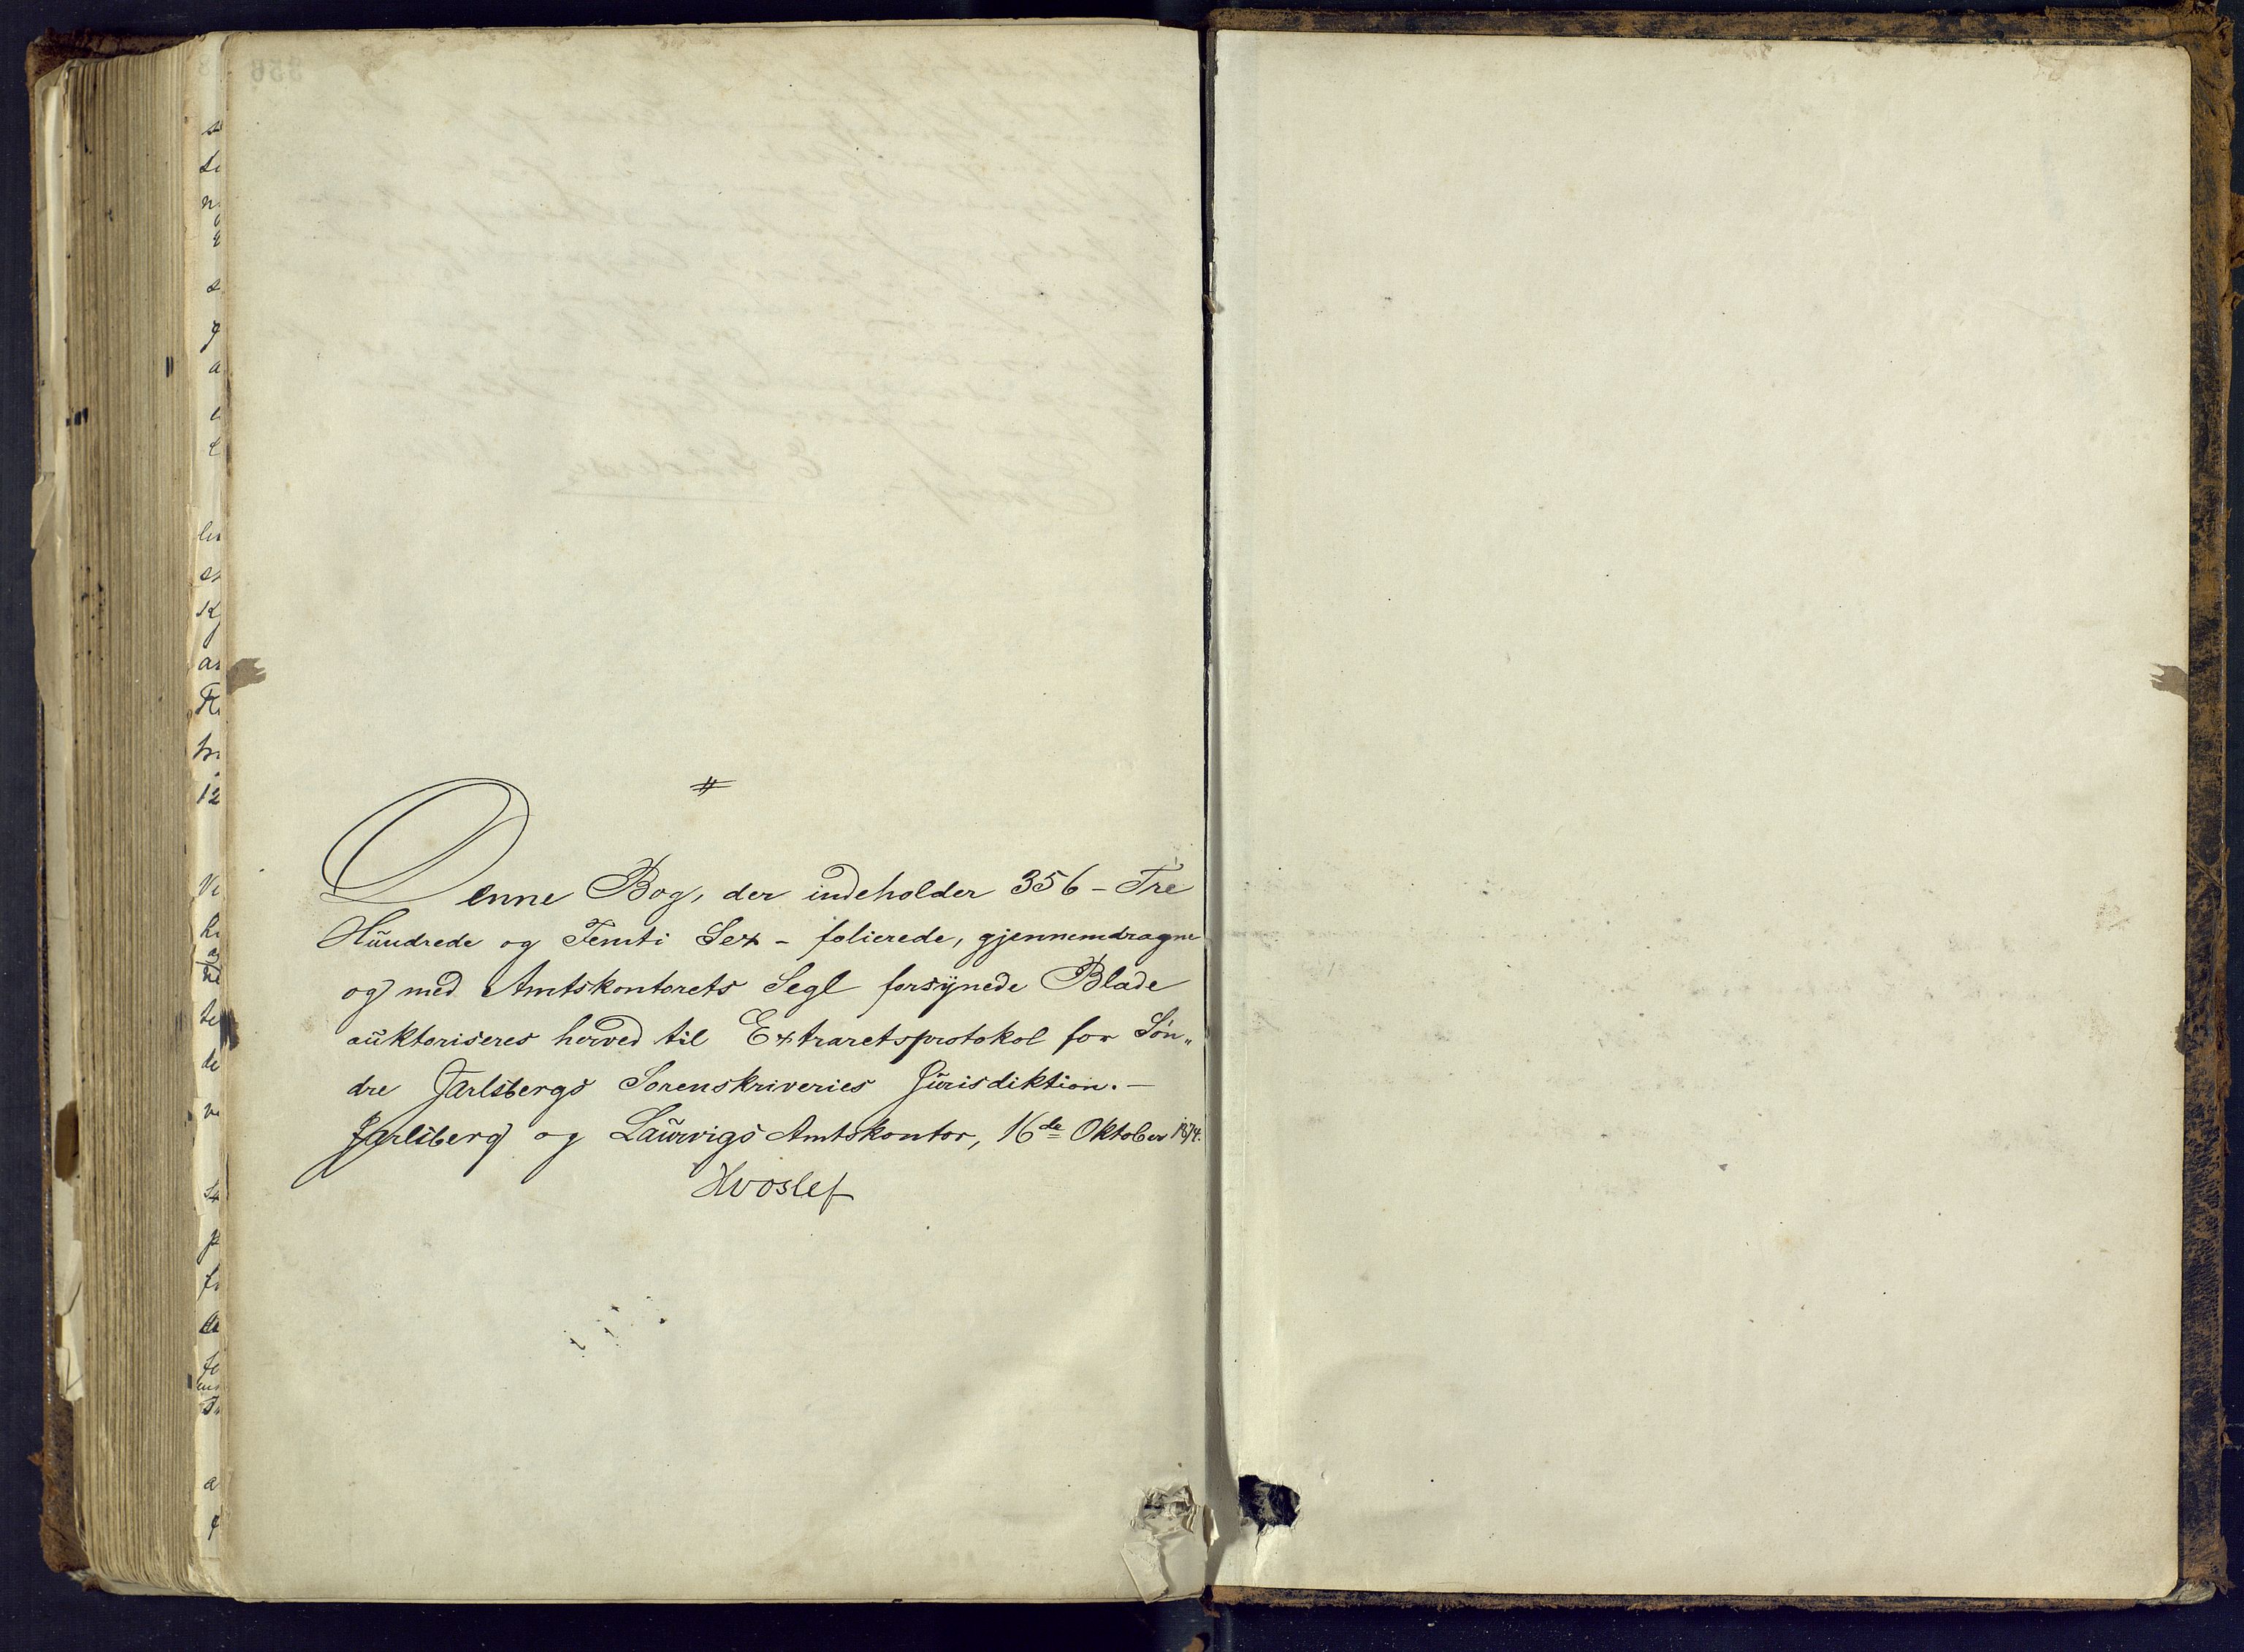 Denne Bog, der indeholder 356 – Tre
Hundrede og Femti Sex – folierede, gjennemdragne
og med Amtskontorets Segl forsynede Blade
auktoriseres herved til Extraretsprotokol for Søn„
dre Jarlsbergs Sorenskriveries Jurisdiktion. –
Jarlsberg og Laurvigs Amtskontor, 16de Oktober 1874.
Hvoslef